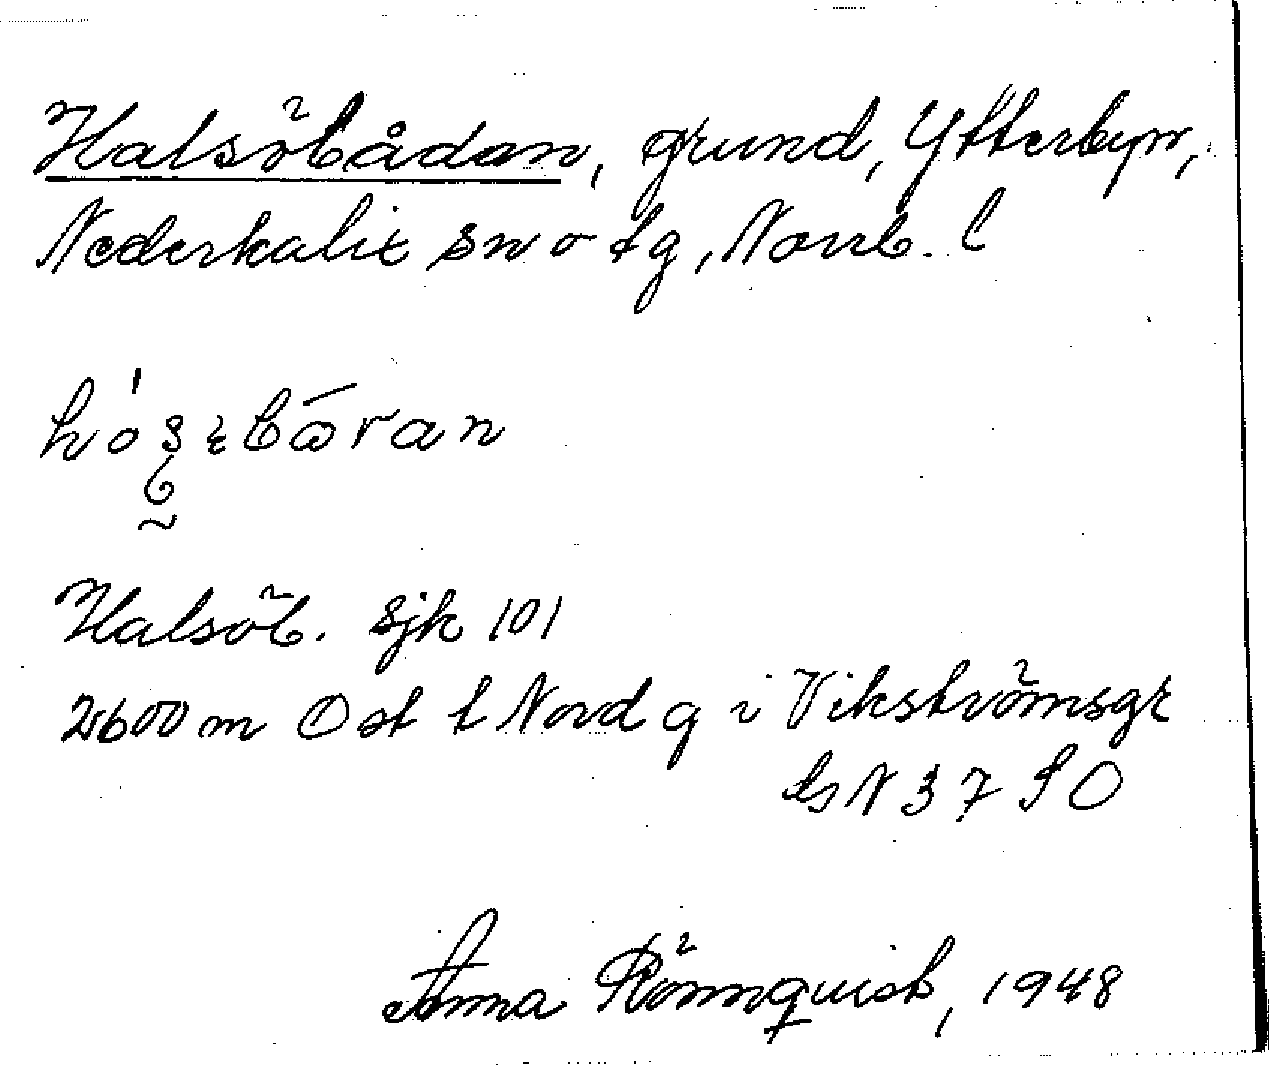 Halsöbådan, grund, Ytterbyn,
Nederkalix sn o tg, Norrb. l
Halsöb. sjk 101
2600 m Ost t Nord g i Vikströmsgr
N 37 SO
Anna Rönnquist, 1948